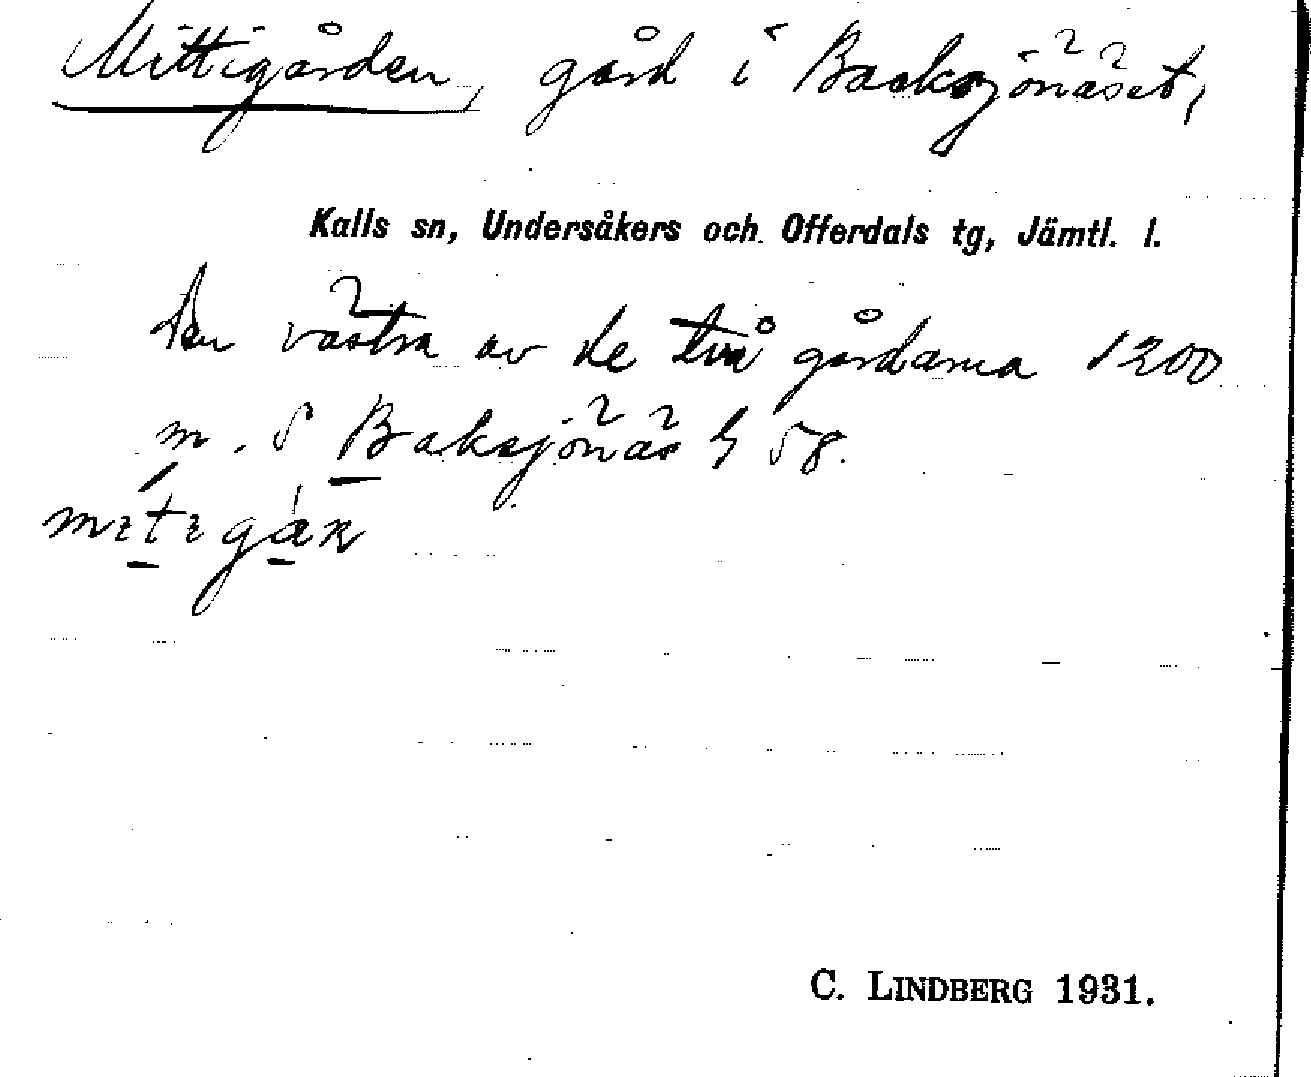 Mittigården, gård i Backsjönäset,
Kalls sn, Undersåkers och Offerdals tg, Jämtl. l.
den västra av de två gårdarna 1200
m. S Baksjönäs 58.
C. LINDBERG 1931.